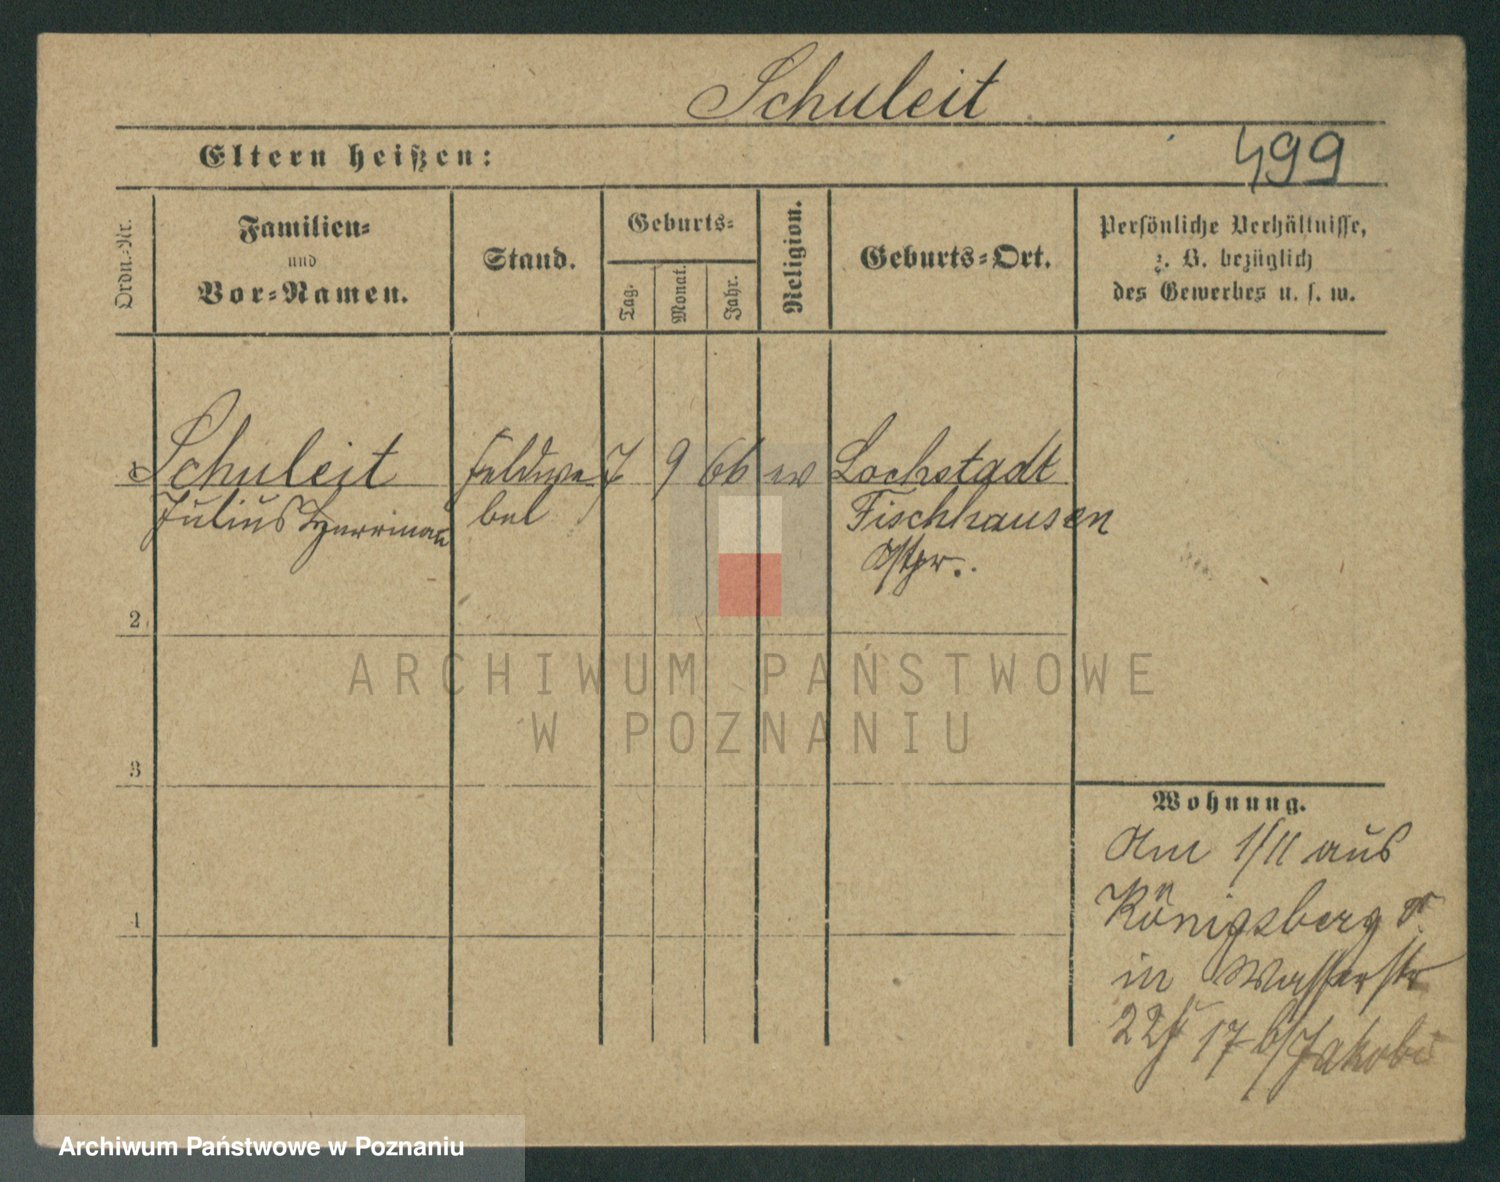 Schuleit
Eltern heißen:
499
Ordn.-Nr.
Familien-
und
Vor-Namen.
Stand.
Geburts-
Tag.
Monat.
Jahr.
Religion.
Geburts-Ort.
Persönliche Verhältnisse,
z. B. bezüglich
des Gewerbes u. s. w.
1 Schuleit Feldwe- 7 9 66 ev Lochstadt
Julius Herrmann bel Fischhausen
Ostpr.
2
ARCHIWUM PAŃSTWOWE
W POZNANIU
3
Wohnung.
Am 1/11 aus
Königsberg
4
in Wasserstr
22 17 b/Jakobi
Archiwum Państwowe w Poznaniu